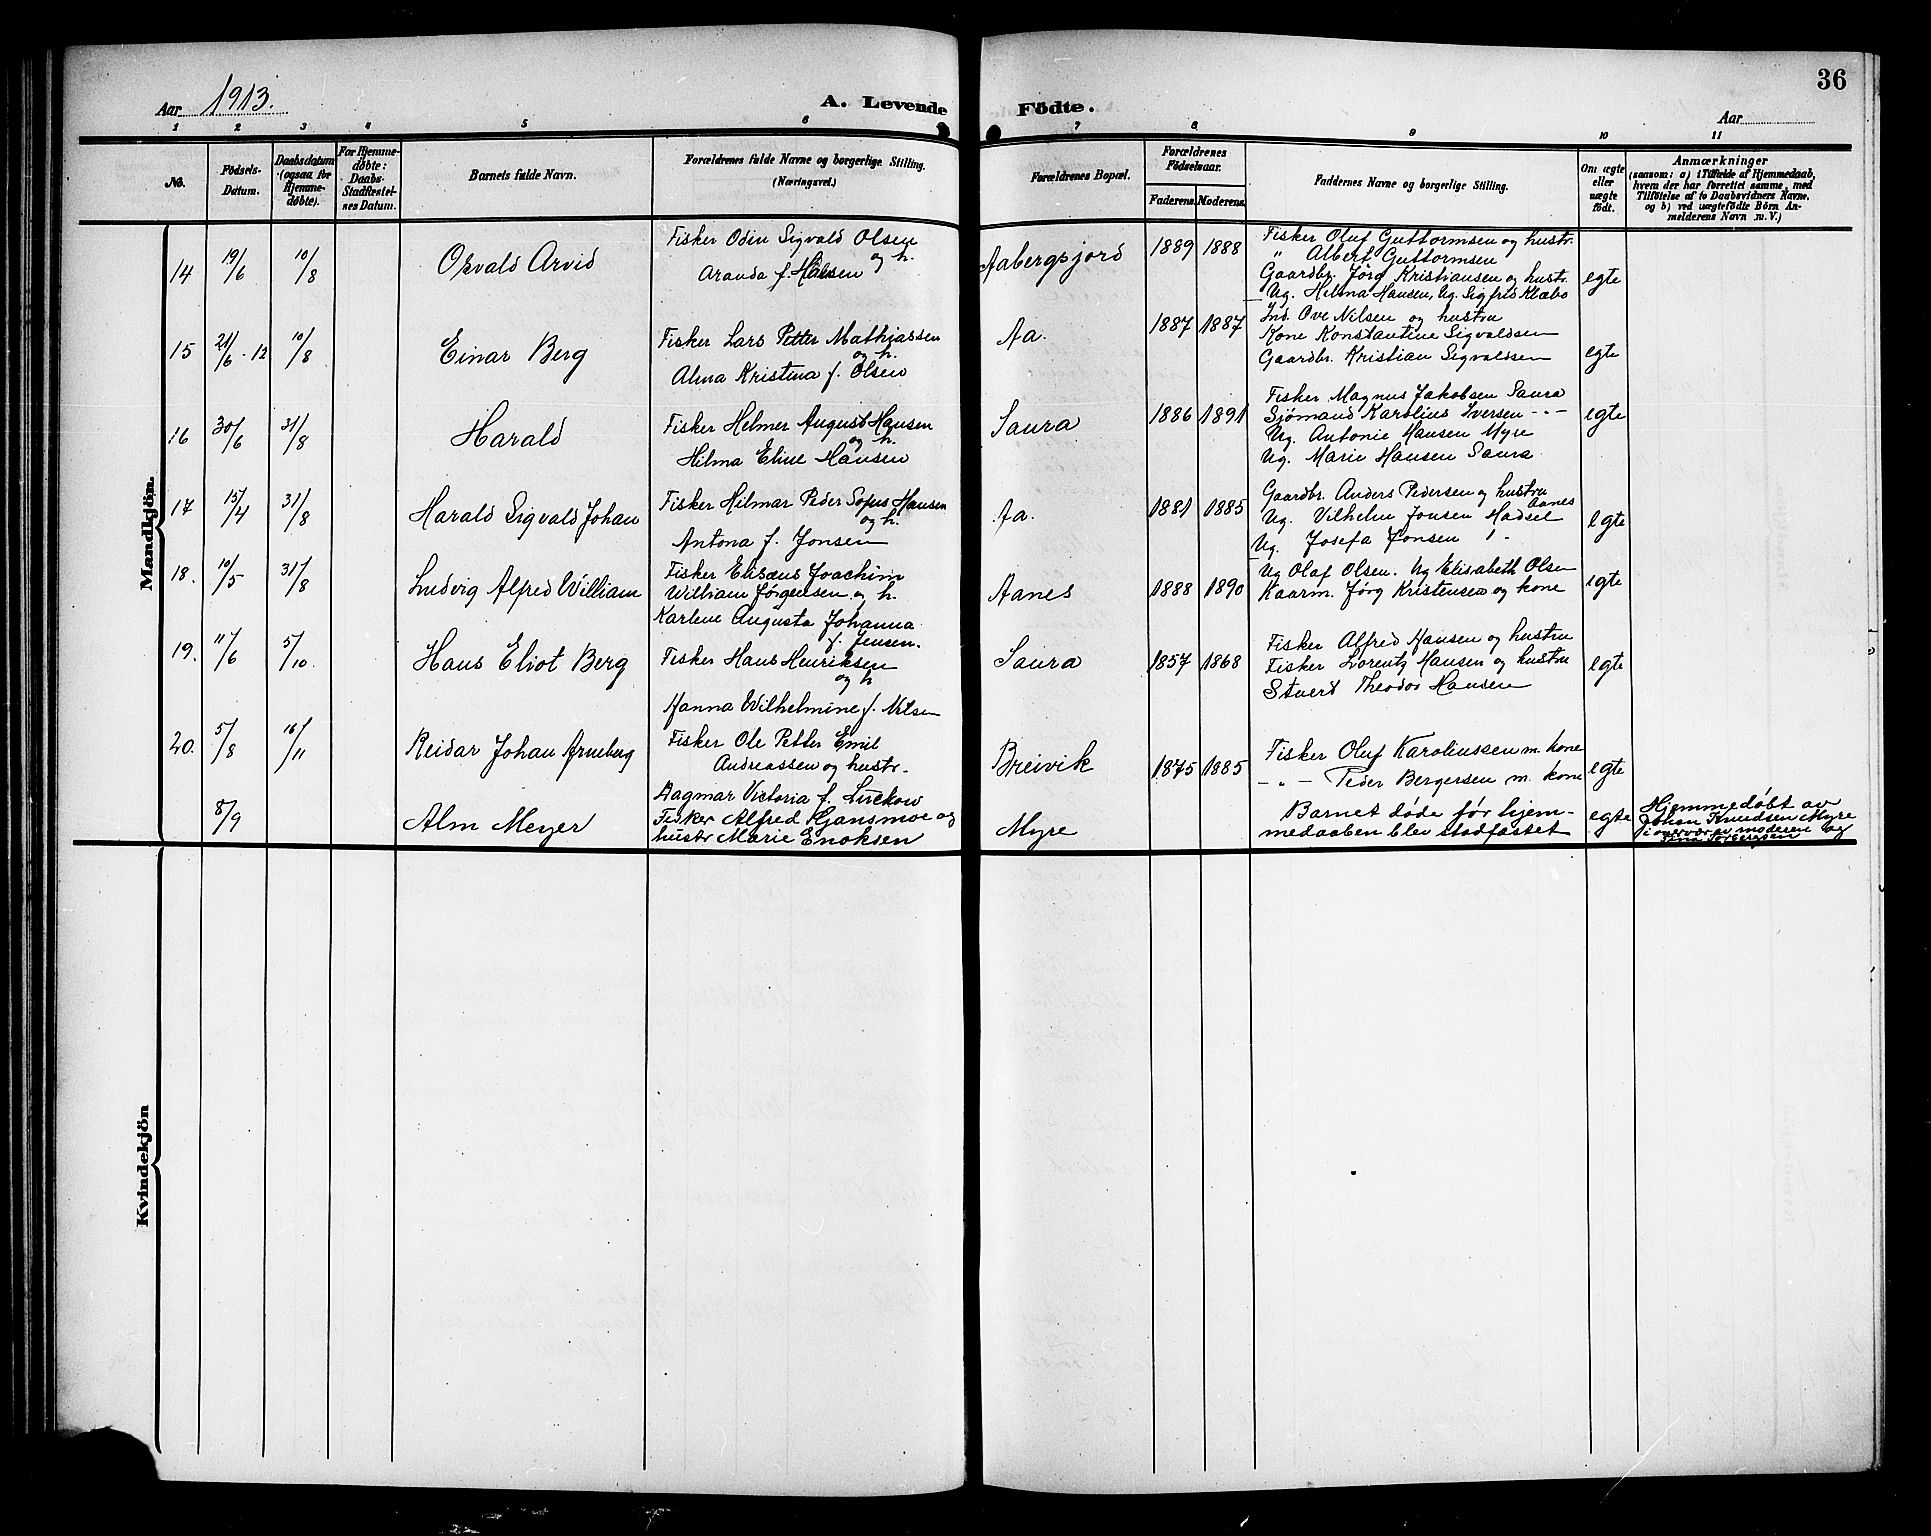 36
Aar 1913.
A. Levende
Födte.
Aar
1 2 3 4 5 6 7 8 9 10 11
No.
Födsels-
Datum.
Daabsdatum
(ogsaa for
Hjemme-
døbte).
For Hjemme-
døbte:
Daabs-
Stadfæstel-
ses Datum.
Barnets fulde Navn.
Forældrenes fulde Navne og borgerlige Stilling.
(Næringsvei.)
Forældrenes Bopæl.
Forældrenes
Födselsaar.
Faderens. Moderens.
Faddernes Navne og borgerlige Stilling.
Om ægte
eller
uægte
födt.
Anmærkninger
(saasom: a) i Tilfælde af Hjemmedaab,
hvem der har forrettet samme, med
Tilföielse af to Daabsvidners Navne,
og b) ved uægtefödte Börn An-
melderens Navn m. V.)
Mandkjön.
14 19/6 10/8 Osvald Arvid
Fisker Odin Sigvald Olsen
og h.
Aranda f. Hansen
Aabergsjord 1889 1888
Fisker Oluf Guttormsen og hustr.
" Albert Guttormsen
Gaardbr. Jørg Kristiansen og hustr.
Ug. Helma Hansen, Ug. Sigfrid Klæbo
egte
15 21/6 - 12 10/8 Einar Berg
Fisker Lars Petter Mathiassen
og h.
Alma Kristina f. Olsen
Aa. 1887 1887
Ind. Ove Nilsen og hustru
Kone Konstantine Sigvaldsen
Gaardbr. Kristian Sigvaldsen
egte
16 30/6 31/8 Harald
Fisker Helmer August Hansen
og h.
Hilma Eline Hansen
Saura 1886 1891
Fisker Magnus Jakobsen Saura
Sjömand Karolius Iversen -"-
Ug. Antonie Hansen Myre
Ug. Marie Hansen Saura
egte
17 15/4 31/8 Harald Sigvald Johan
Fisker Hilmar Peder Sofus Hansen
og h.
Antona f. Jonsen
Aa. 1881 1885
Gaardbr. Anders Pedersen og hustru
Aanes
Ug. Vilhelm Jonsen Hadsel
Ug. Josefa Jonsen
egte
18. 10/5 31/8 Ludvig Alfred William
Fisker Elisæus Joachim
William Jørgensen og h.
Karlene Augusta Johanna
f. Jensen.
Aanes 1888 1890
Ug Olaf Olsen. Ug Elisabeth Olsen
Kaarm. Jörg Kristensen og kone
egte
19. 11/6 5/10. Hans Eliot Berg
Fisker Hans Henriksen
og h
Hanna Wilhelmine f. Nilsen
Saura 1857 1868
Fisker Alfred Hansen og hustru
Fisker Lorentz Hansen og hustru
Stuert Theodor Hansen
egte
20. 5/8 16/11 Reidar Johan Arneberg
Fisker Ole Petter Emil
Andreassen og hustr.
Dagmar Victoria f. Lückow
Breivik 1875 1885
Fisker Oluf Karoliussen m. kone
-"- Peder Bergersen m. kone
egte
8/9 Alm Meyer
Fisker Alfred Gjansmoe og
hustr Marie Enoksen
Myre
Barnet døde før hjem-
medaaben blev stadfæstet
egte
Hjemmedøbt av
Johan Knudsen Myre
i overvær av moderen og
Kvindekjön